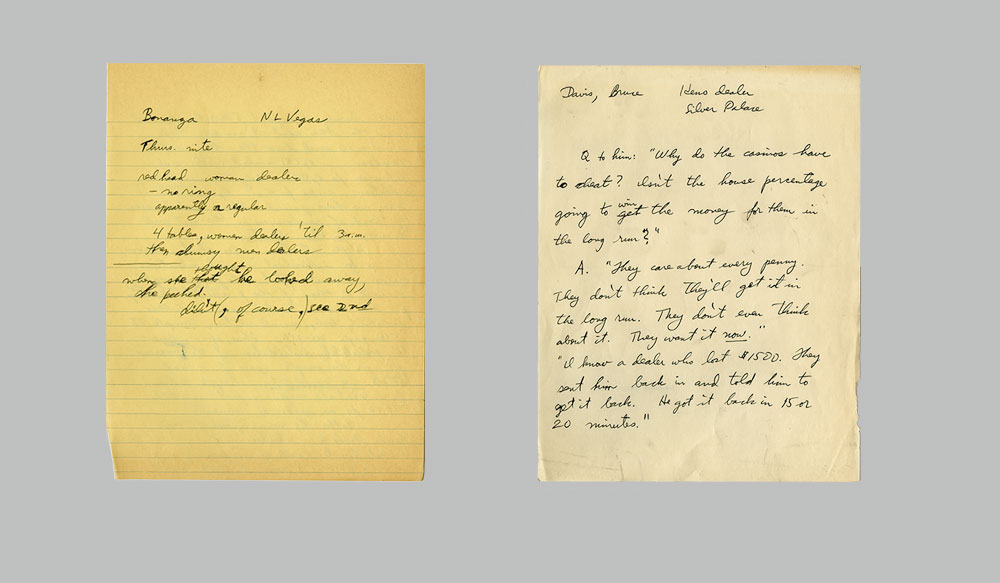 Bonanza N L Vegas
Thurs. nite
red head woman dealer
– no ring
apparently a regular
4 tables, women dealers 'til 3 a.m.
then clumsy men dealers
thought
when she that he looked away,
she peeked.
didn't (, of course,) see 2nd
Davis, Bruce Keno dealer
Silver Palace
Q to him: "Why do the casinos have
to cheat? Isn't the house percentage
win
going to get the money for them in
the long run?"
A. "They care about every penny.
They don't think they'll get it in
the long run. They don't even think
about it. They want it now."
"I know a dealer who lost $1500. They
sent him back in and told him to
get it back. He got it back in 15 or
20 minutes."